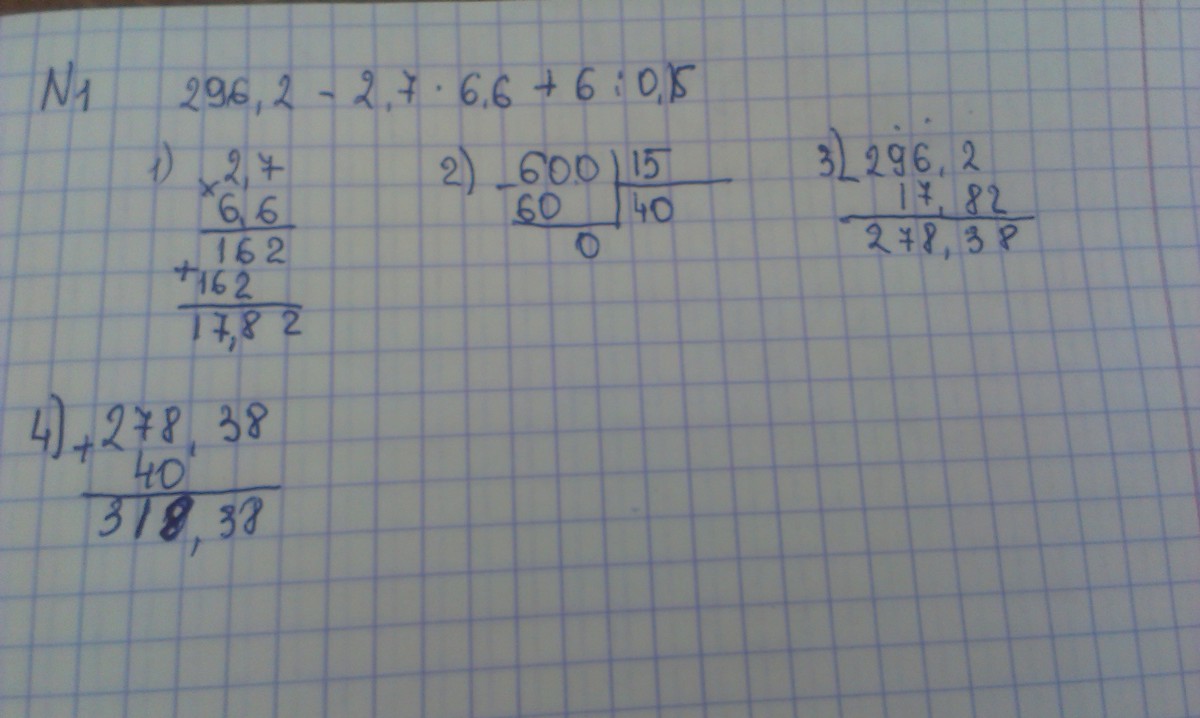 N1 296,2 - 2,7 · 6,6 + 6 : 0,15
1) × 2,7
6,6
162
+ 162
17,82
2) - 600 | 15
60 | 40
0
3) - 296,2
17,82
278,38
4) + 278,38
40
318,38